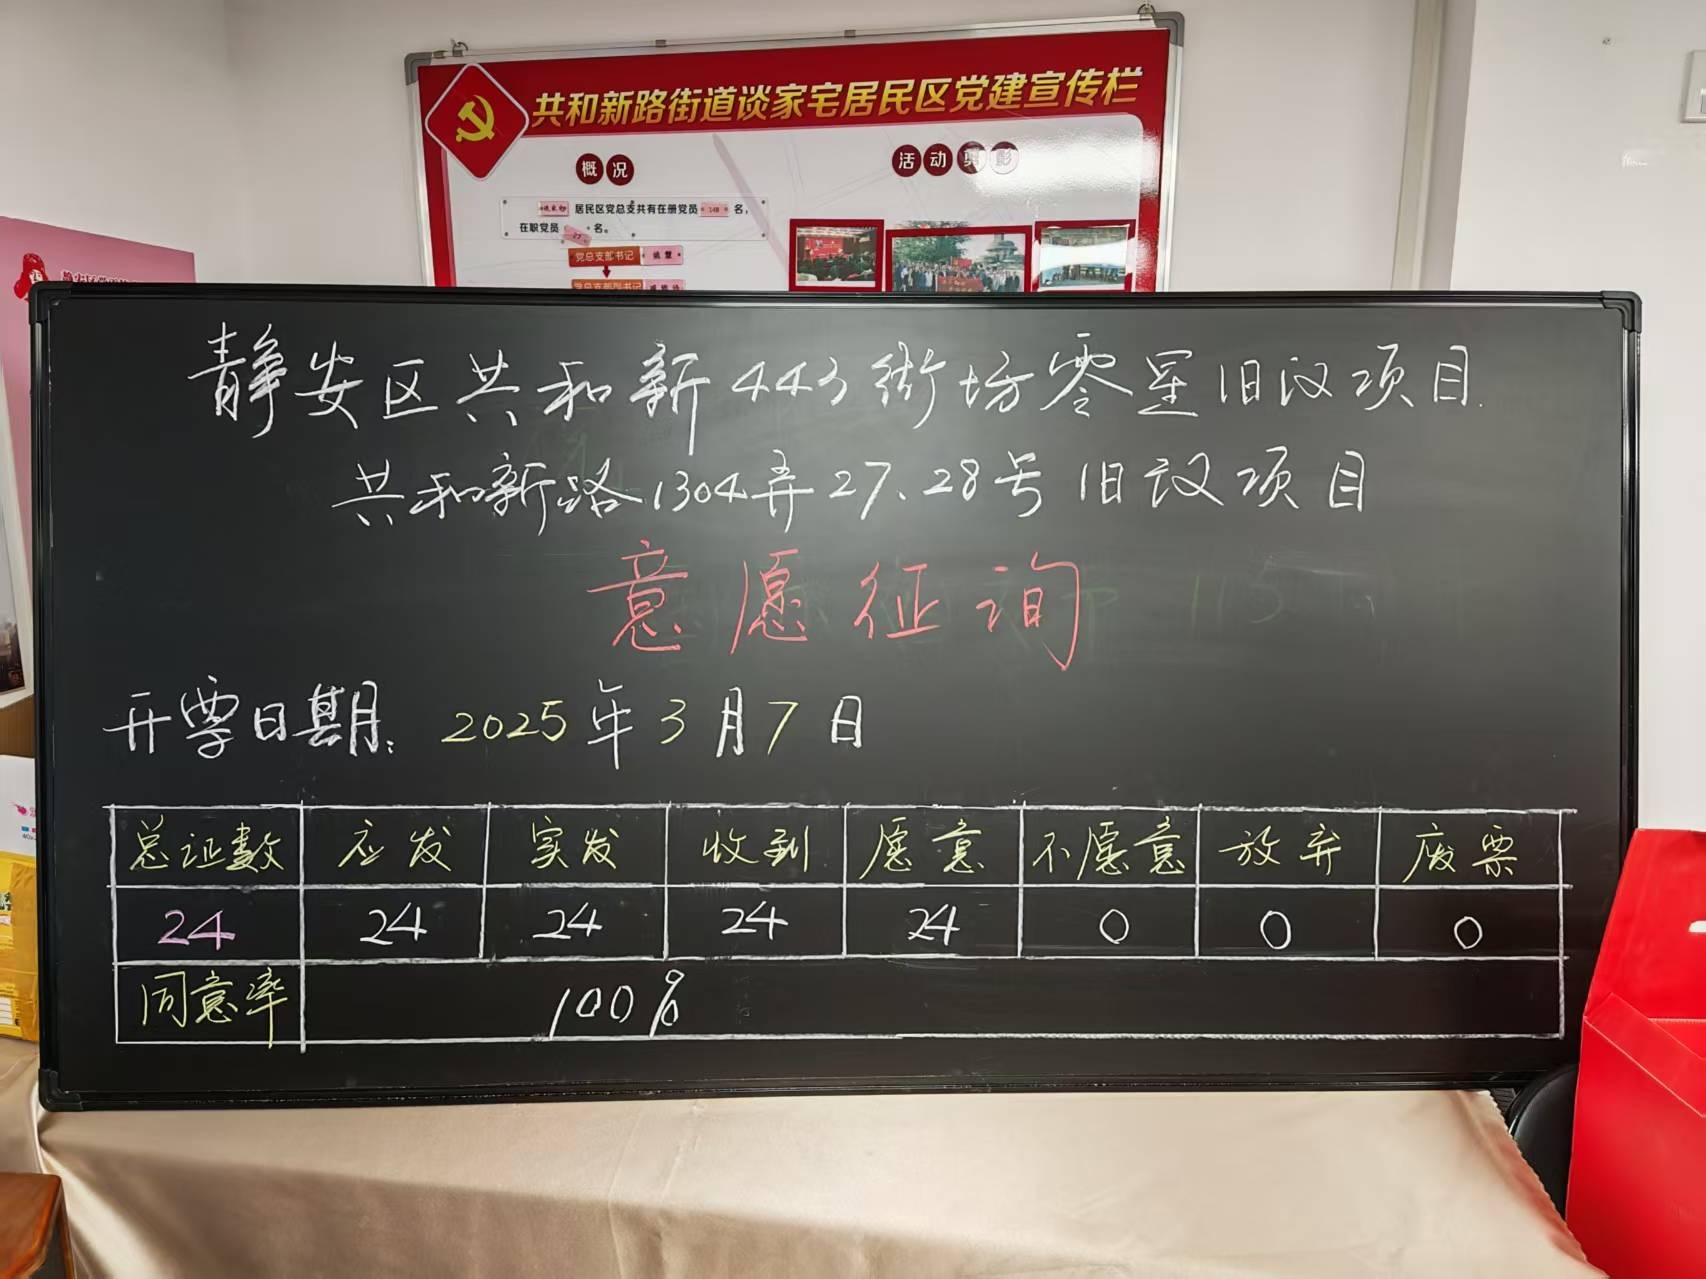 共和新路街道谈家宅居民区党建宣传栏
概况
活动剪影
居民区党总支共有在册党员 148 名，
在职党员 27 名。
党总支部书记
党总支部副书记
静安区共和新443街坊零星旧改项目
共和新路1304弄27、28号旧改项目
意愿征询
开票日期：2025年3月7日
总证数 应发 实发 收到 愿意 不愿意 放弃 废票
24 24 24 24 24 0 0 0
同意率 100%